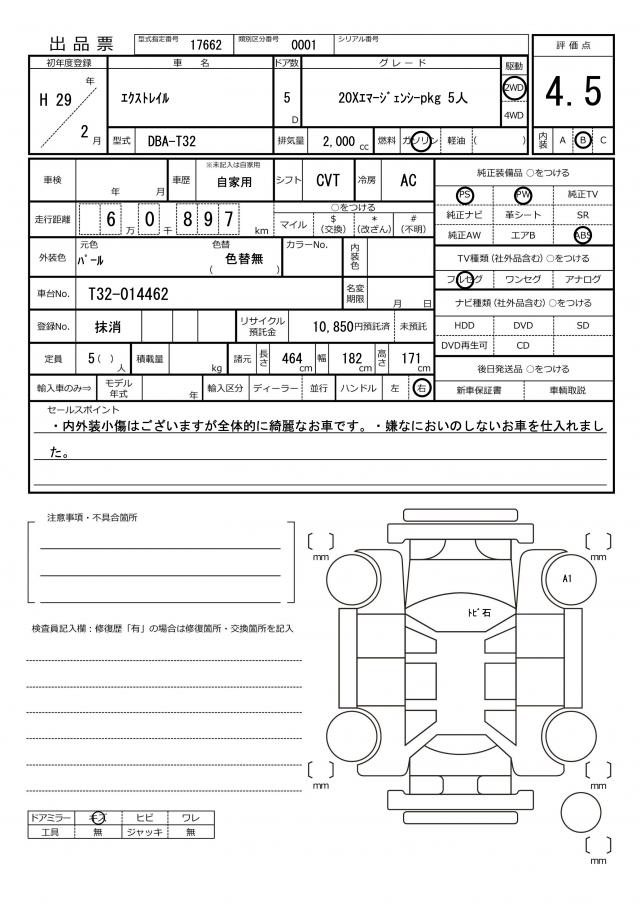 出品票
型式指定番号 17662 類別区分番号 0001 シリアル番号
初年度登録 車名 ドア数 グレード 駆動 評価点
H 29 年 2 月 エクストレイル 5 D 20Xエマージェンシーpkg 5人 2WD 4WD 4.5
型式 DBA-T32 排気量 2,000 cc 燃料 ガソリン 軽油 ( ) 内装 A B C
車検 年 月 車歴 ※未記入は自家用 自家用 シフト CVT 冷房 AC
走行距離 6 万 0 千 8 9 7 km ○をつける
マイル $ (交換) * (改ざん) # (不明)
外装色 元色 パール 色替 色替無 ( ) カラーNo. 内装色
車台No. T32-014462 名変期限 月 日
登録No. 抹消 リサイクル預託金 10,850円預託済 未預託
定員 5 ( ) 人 積載量 kg 諸元 長さ 464 cm 幅 182 cm 高さ 171 cm
輸入車のみ⇒ モデル年式 年 輸入区分 ディーラー 並行 ハンドル 左 右
純正装備品 ○をつける
PS PW 純正TV
純正ナビ 革シート SR
純正AW エアB ABS
TV種類 (社外品含む) ○をつける
フルセグ ワンセグ アナログ
ナビ種類 (社外品含む) ○をつける
HDD DVD SD
DVD再生可 CD
後日発送品 ○をつける
新車保証書 車輌取説
セールスポイント
・内外装小傷はございますが全体的に綺麗なお車です。・嫌なにおいのしないお車を仕入れまし
た。
注意事項・不具合箇所
検査員記入欄：修復歴「有」の場合は修復箇所・交換箇所を記入
mm
mm
A1
トビ石
mm
mm
mm
ドアミラー キズ ヒビ ワレ
工具 無 ジャッキ 無